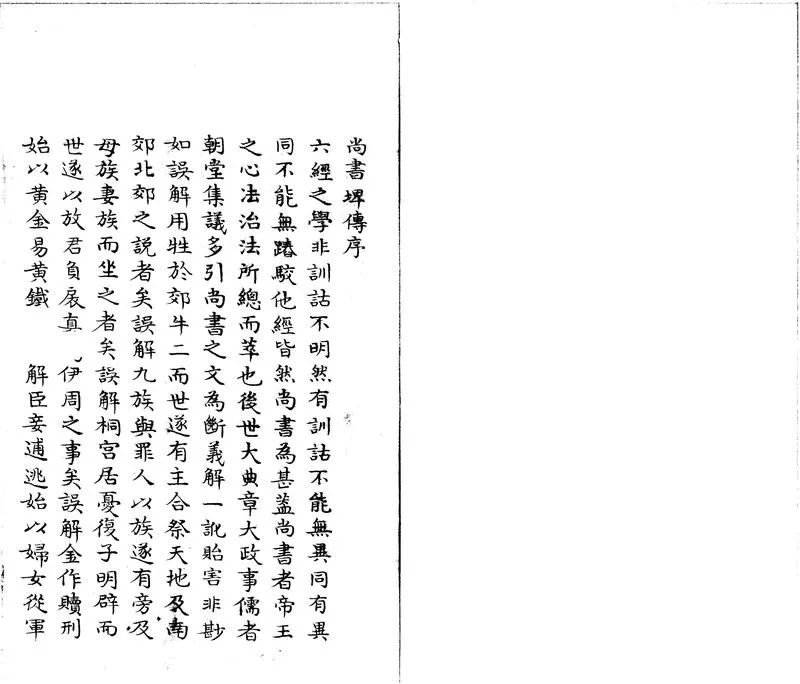 尚書埤傳序
六經之學非訓詁不明然有訓詁不能無異同有異
同不能無踳駁他經皆然尚書為甚葢尚書者帝王
之心法治法所總而萃也後世大典章大政事儒者
朝堂集議多引尚書之文為斷義解一訛貽害非尠
如誤解用牲於郊牛二而世遂有主合祭天地及南
郊北郊之説者矣誤解九族與罪人以族遂有旁及
母族妻族而坐之者矣誤解桐宫居憂復子明辟而
世遂以放君負扆真 伊周之事矣誤解金作贖刑
始以黄金易黄鐵 解臣妾逋逃始以婦女從軍